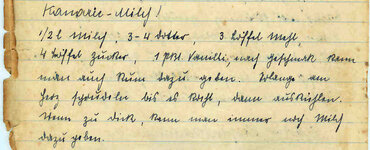 Kanarie-Milch!
1/2 l Milch, 3-4 Dotter, 3 Löffel Mehl,
4 Löffel Zucker, 1 Pkt. Vanilli, nach geschmak kann
man auch Rum dazu geben. Solange am
Herz sprudeln bis es kocht, dann auskühlen.
Wenn zu dick, kann man immer noch Milch
dazu geben.